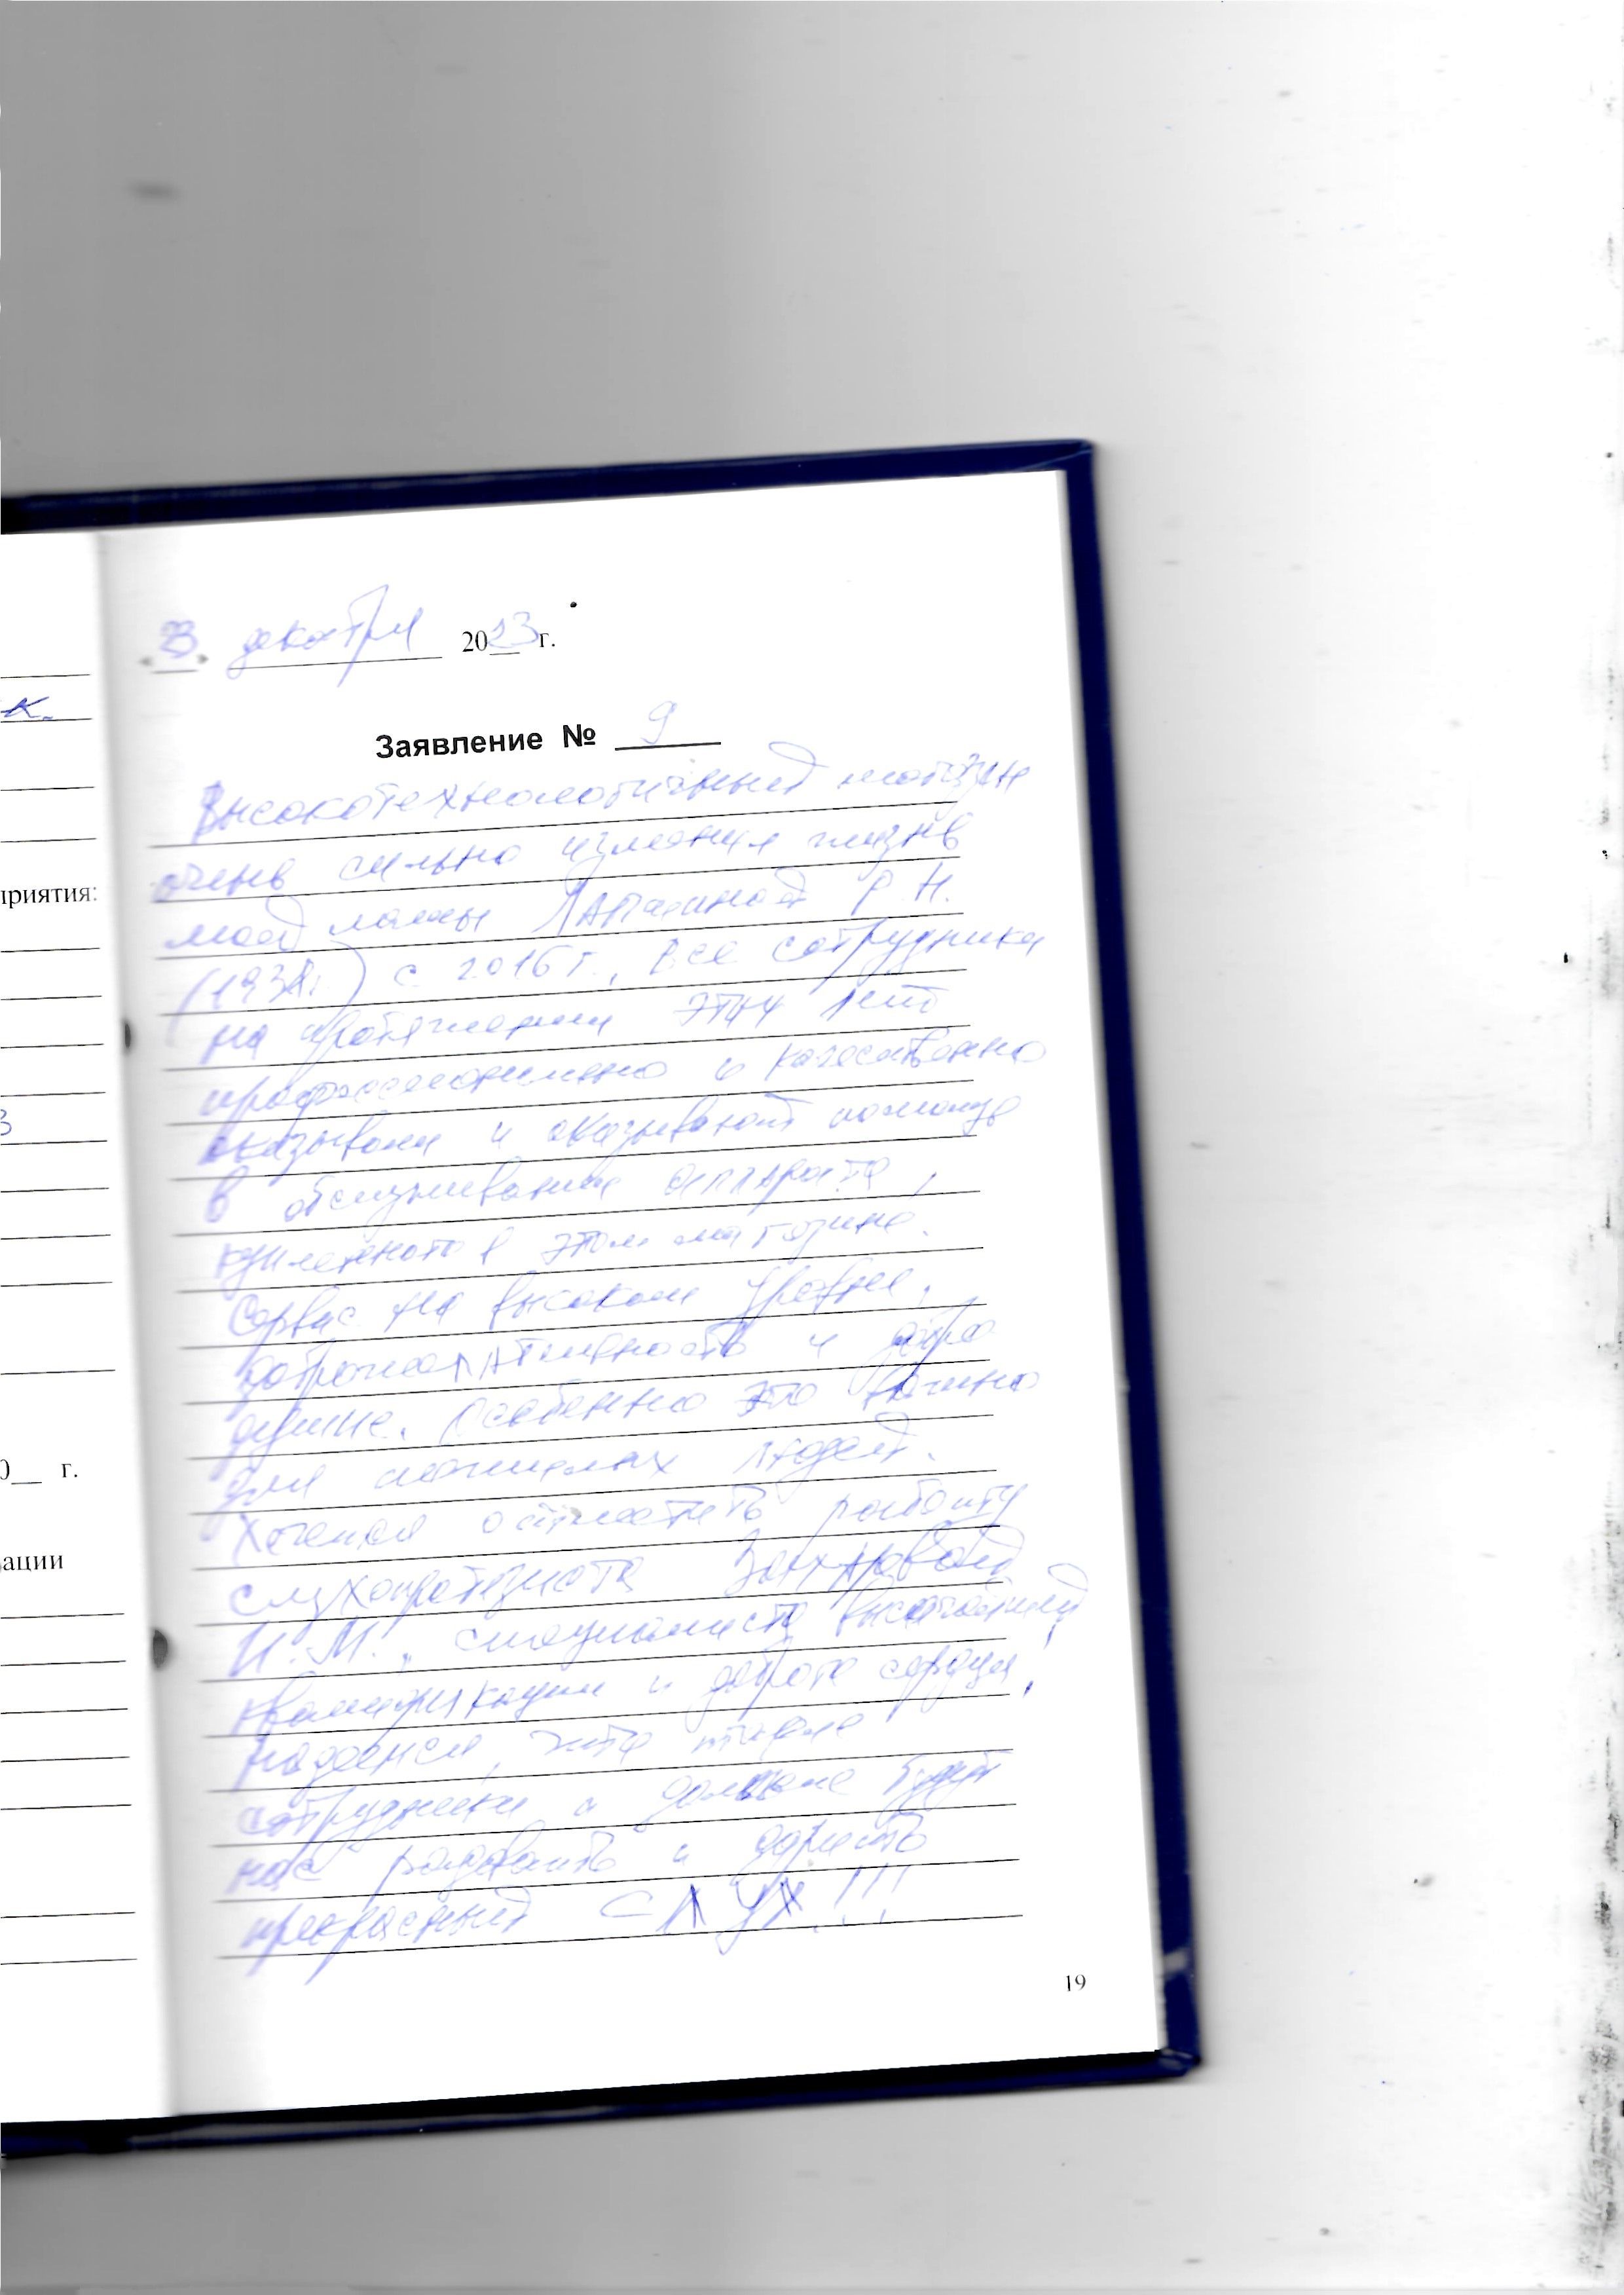 к.
приятия:
3
0__ г.
ации
декабря 2023 г.
Заявление № 9
Высокотехнологичный магазин
очень сильно изменил жизнь
моей мамы Р.Н.
с 2016 г., все сотрудники
на протяжении этих лет
профессионально и качественно
оказывали и оказывают помощь
в обслуживании аппарата,
купленного в этом магазине.
Сервис на высоком уровне,
доброжелательность и добро
душие. Особенно это важно
для пожилых людей.
Хочется отметить работу
слухопротезиста Захаровой
И.М., специалиста высочайшей
квалификации и доброго сердца,
надеемся, что такие
сотрудники и дальше будут
нас радовать и дарить
прекрасный СЛУХ!!!
19